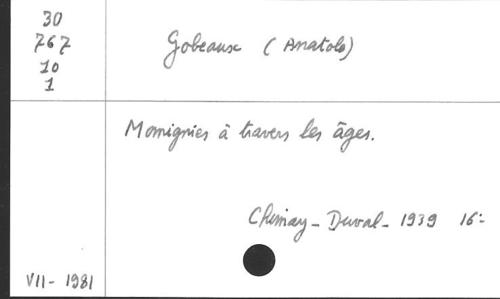 30
767
10
1
Gobeaux (Anatole)
Momignies à travers les âges.
Chimay - Duval - 1939 16:
VII - 1981